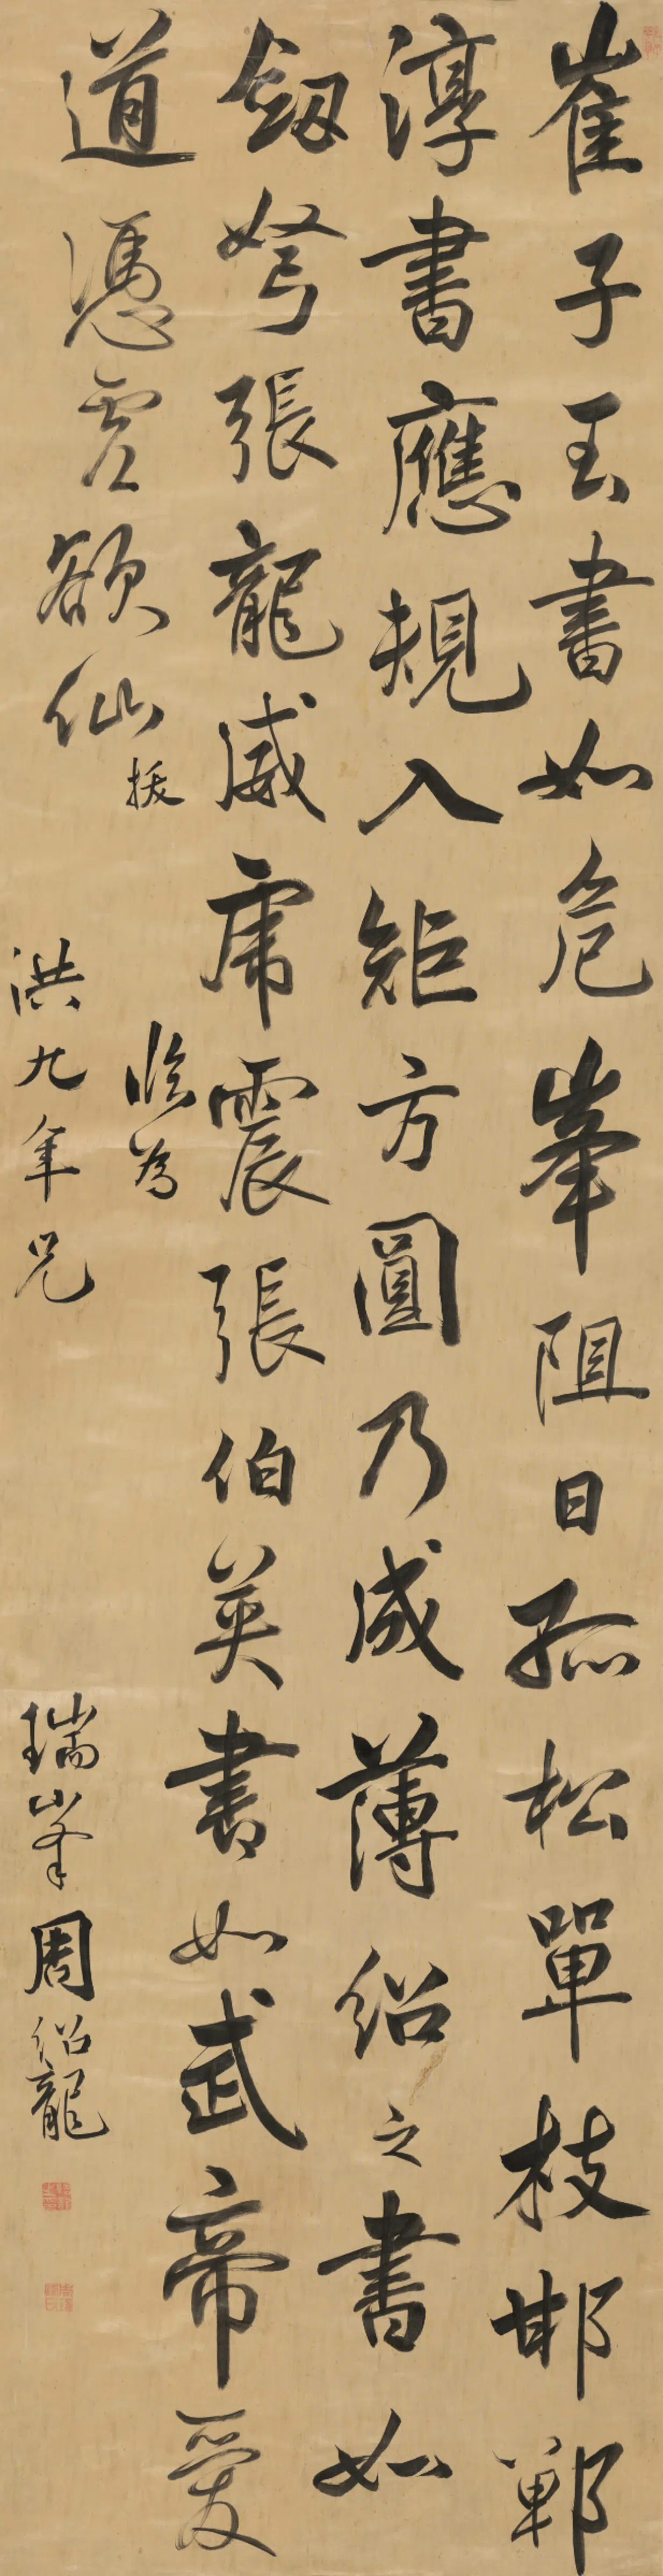 崔子玉書如危峯阻日孤松單枝邯鄲
淳書應規入矩方圓乃成薄紹之書如
劔弩張龍威虎震張伯英書如武帝愛
道憑虛欲仙
臨為
洪九年兄
瑞峯周紹龍